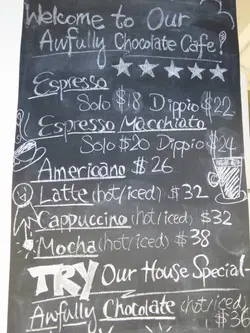 Welcome to Our
Awfully Chocolate Cafe!
Espresso
Solo $18 Dippio $22
Espresso Macchiato
Solo $20 Dippio $24
Americano $26
Latte (hot/iced) $32
Cappuccino (hot/iced) $32
Mocha (hot/iced) $38
TRY Our House Special
Awfully Chocolate (hot/iced)
$36